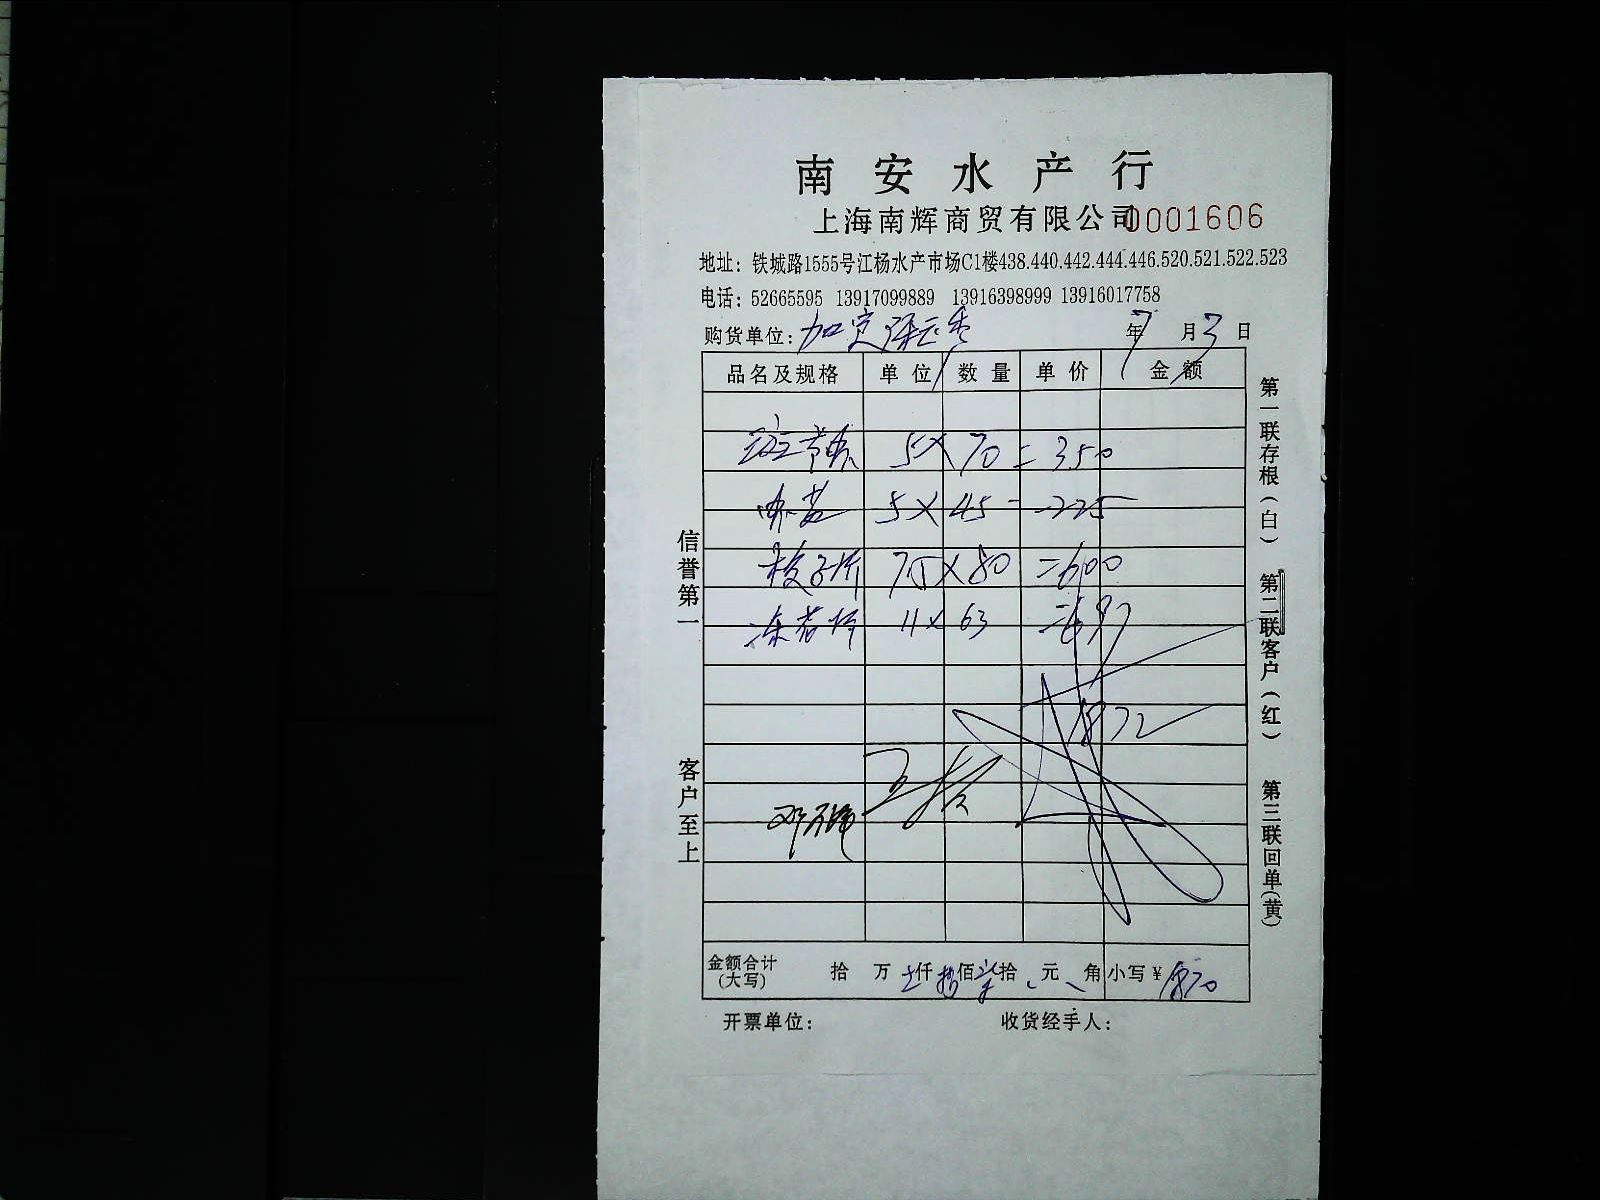 南安水产行
上海南辉商贸有限公司 0001606
地址：铁城路1555号江杨水产市场C1楼438.440.442.444.446.520.521.522.523
电话：52665595 13917099889 13916398999 13916017758
购货单位：加定 年 7 月 3 日
品名及规格 单位 数量 单价 金额
斑节 5 × 70 = 350
5 × 45 = 225
75 × 80 = 600
冻 11 × 63 = 697
1872
金额合计 拾 万 仟 佰 柒 拾 元 角 小写 ¥ 1870
(大写)
开票单位： 收货经手人：
信誉第一
客户至上
第一联存根(白)
第二联客户(红)
第三联回单(黄)